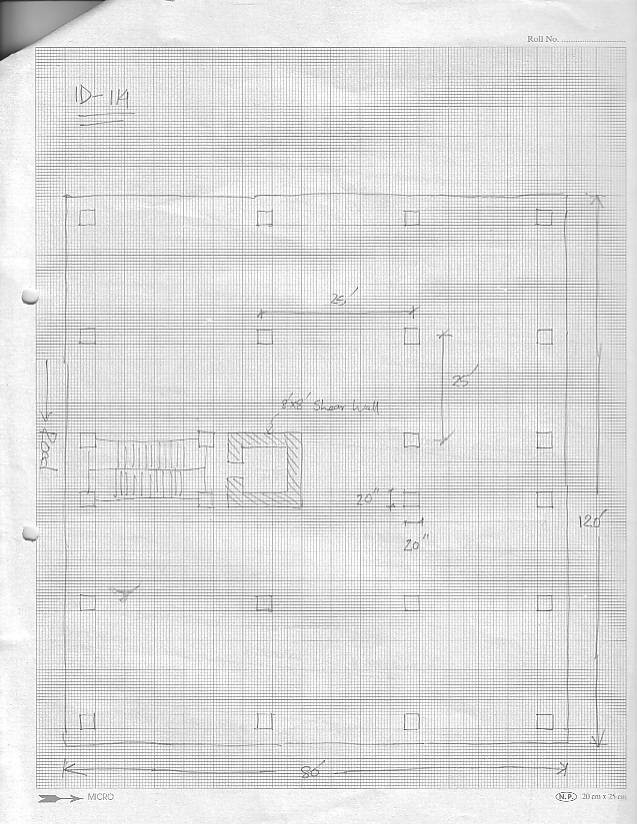 Roll No.
ID-114
25'
25'
8'x8' Shear Wall
Road
20"
20"
120'
80'
MICRO
N.P. 20 cm x 25 cm